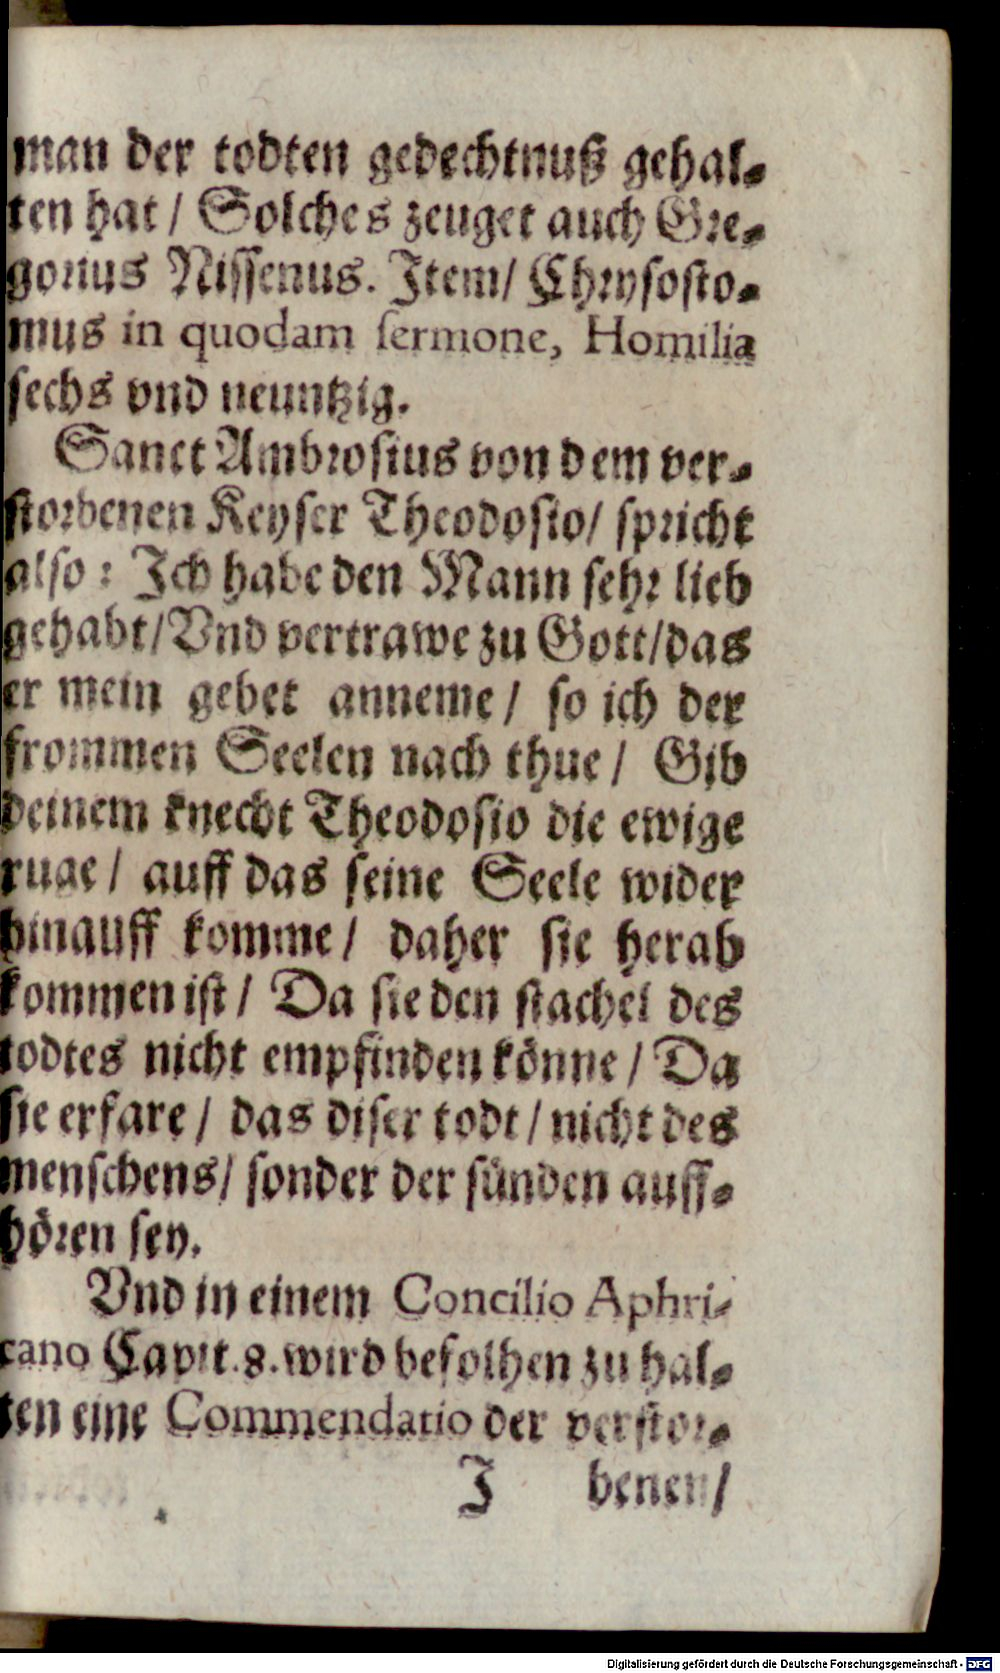 man der todten gedechtnuß gehal-
ten hat / Solches zeuget auch Gre-
gorius Nissenus. Item / Chrysosto-
mus in quodam sermone, Homilia
sechs vnd neuntzig.
Sanct Ambrosius von dem ver-
storbenen Keyser Theodosio / spricht
also : Ich habe den Mann sehr lieb
gehabt / Vnd vertrawe zu Gott / das
er mein gebet anneme / so ich der
frommen Seelen nach thue / Gib
deinem knecht Theodosio die ewige
ruge / auff das seine Seele wider
hinauff komme / daher sie herab
kommen ist / Da sie den stachel des
todtes nicht empfinden könne / Da
sie erfare / das diser todt / nicht des
menschens / sonder der sünden auff-
hören sey.
Vnd in einem Concilio Aphri-
cano Capit. 8. wird befolhen zu hal-
ten eine Commendatio der verstor-
J benen /
Digitalisierung gefördert durch die Deutsche Forschungsgemeinschaft - DFG